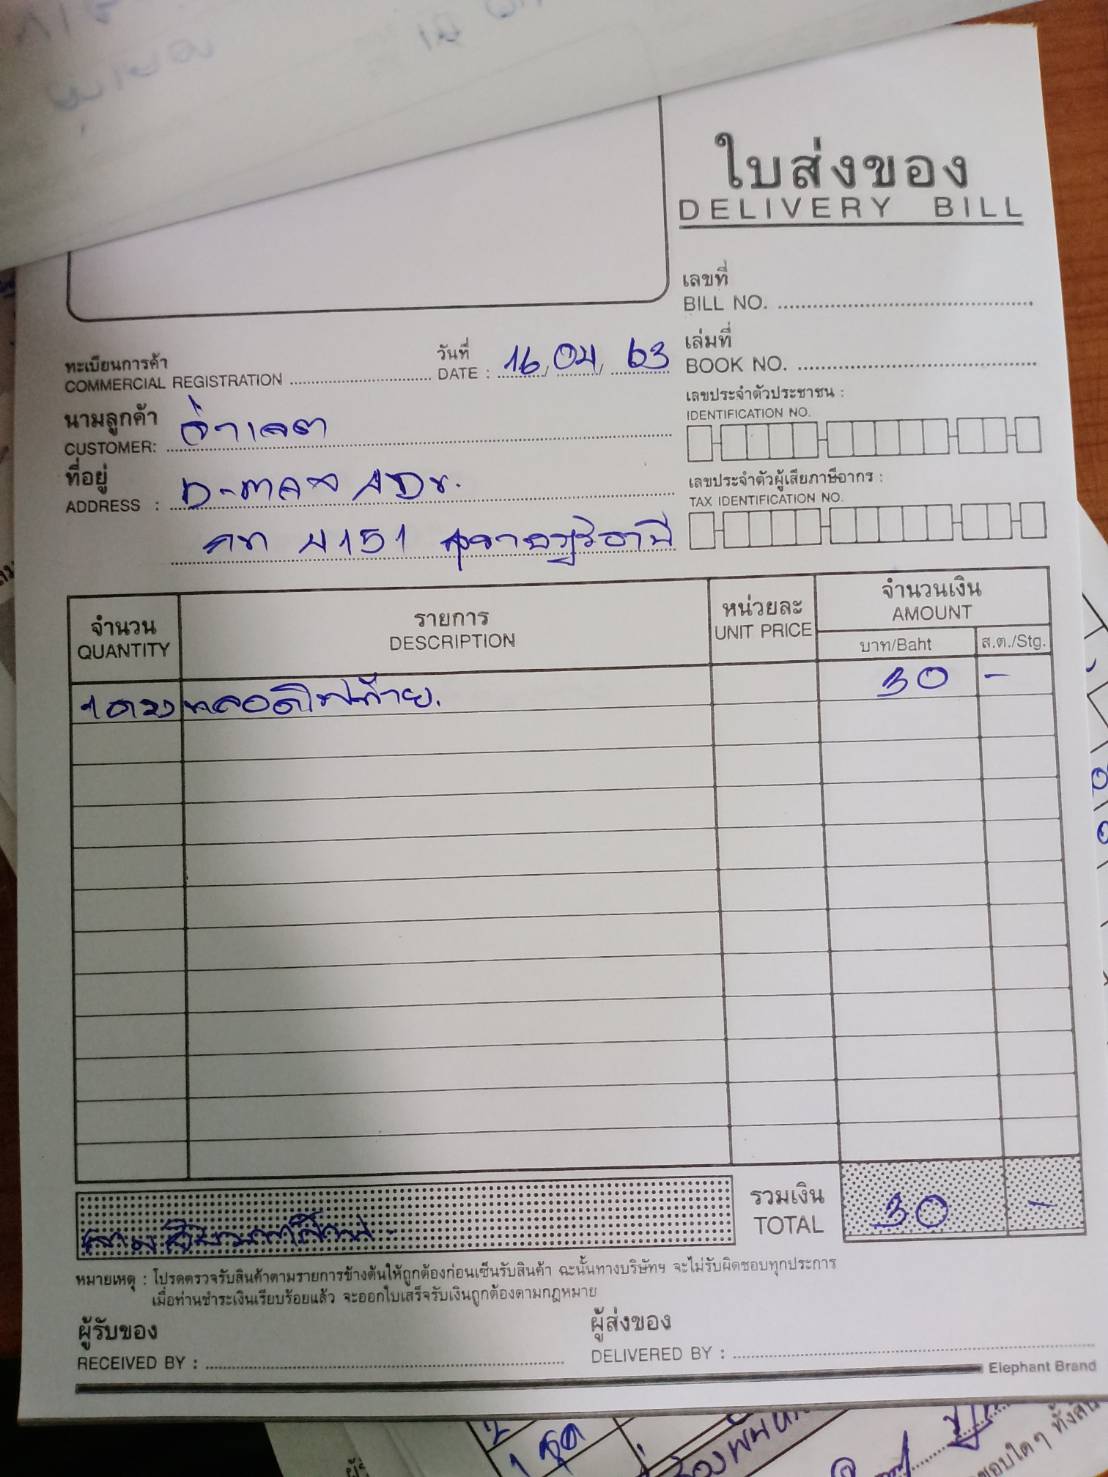 ใบส่งของ
DELIVERY BILL
เลขที่
BILL NO.
เล่มที่
BOOK NO.
ทะเบียนการค้า
COMMERCIAL REGISTRATION
วันที่
DATE : 16, 04, 63
เลขประจำตัวประชาชน :
IDENTIFICATION NO.
นามลูกค้า
CUSTOMER: จ่าเจต
ที่อยู่
ADDRESS :
4151 สุราษฎร์ธานี
เลขประจำตัวผู้เสียภาษีอากร :
TAX IDENTIFICATION NO.
จำนวน
QUANTITY
รายการ
DESCRIPTION
หน่วยละ
UNIT PRICE
จำนวนเงิน
AMOUNT
บาท/Baht
ส.ต./Stg.
1 ดวง หลอดไฟท้าย. 30 -
สามสิบบาทถ้วน -
รวมเงิน
TOTAL
30 -
หมายเหตุ : โปรดตรวจรับสินค้าตามรายการข้างต้นให้ถูกต้องก่อนเซ็นรับสินค้า ฉะนั้นทางบริษัทฯ จะไม่รับผิดชอบทุกประการ
เมื่อท่านชำระเงินเรียบร้อยแล้ว จะออกใบเสร็จรับเงินถูกต้องตามกฎหมาย
ผู้รับของ
RECEIVED BY :
ผู้ส่งของ
DELIVERED BY :
Elephant Brand
1 ชุด